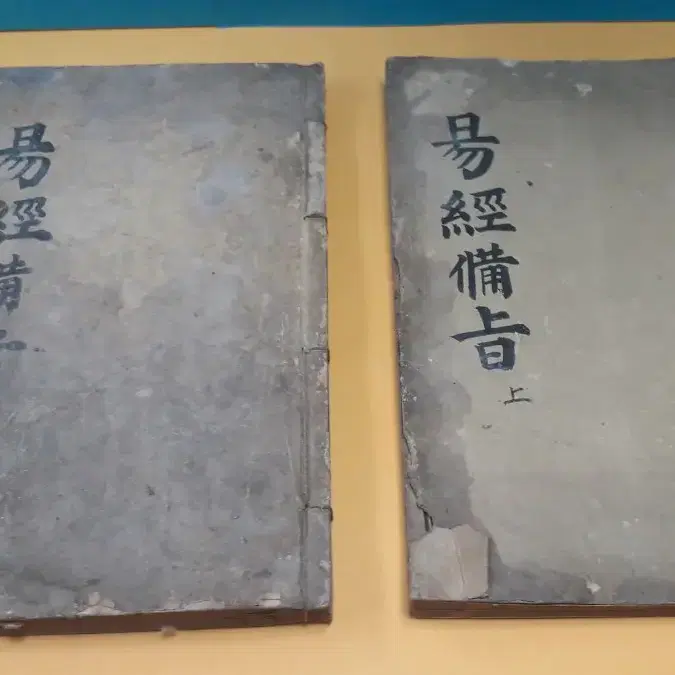 易經備旨
上
易經備